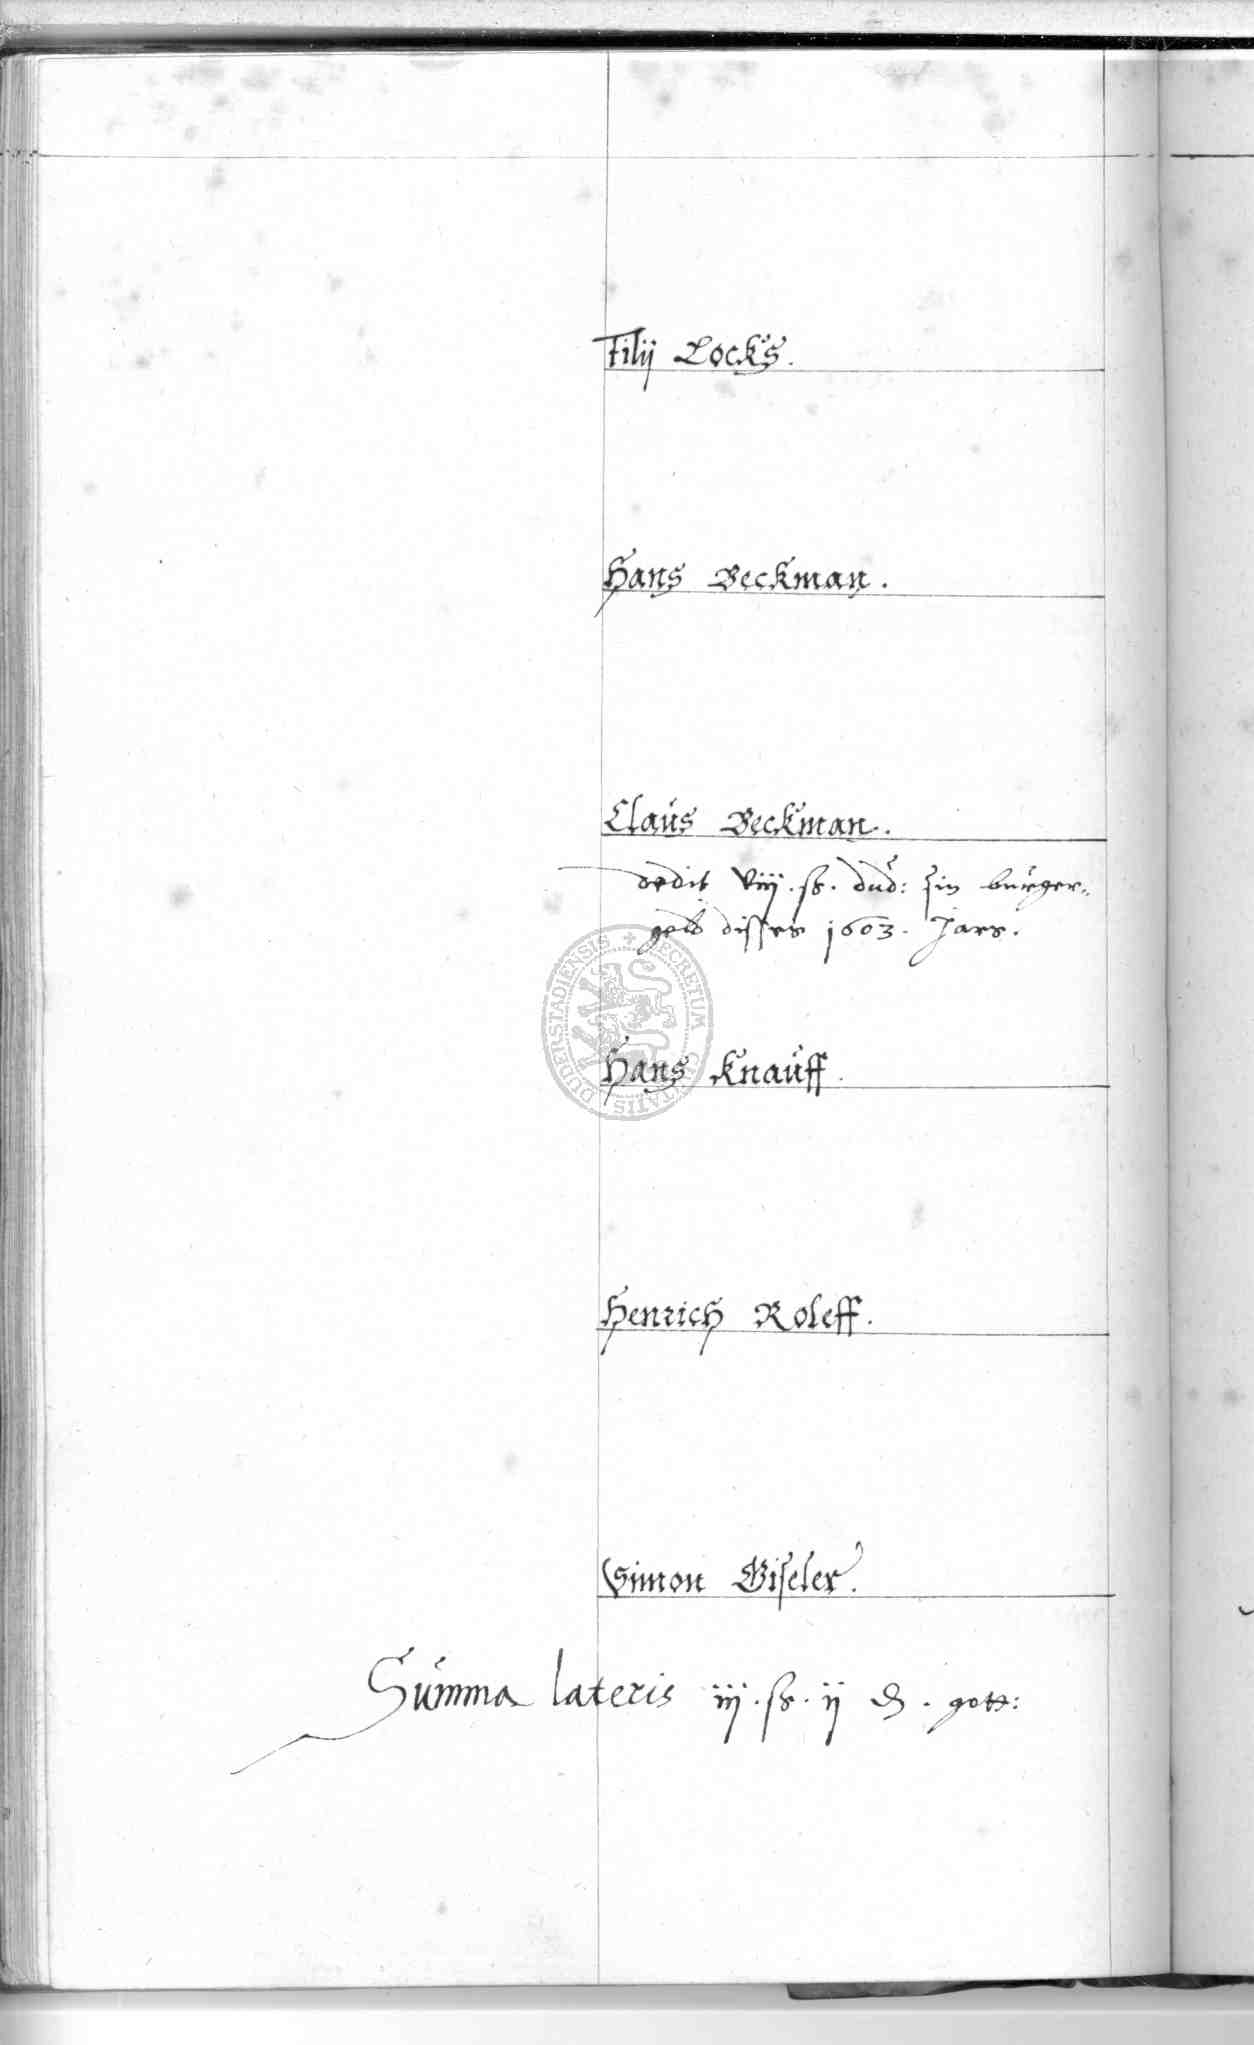 Filij Locks.
Hans Beckman.
Claus Beckman.
dedit viij. ß. dud: zu burger-
geld disses 1603. Jars.
SECRETUM CIVITATIS DUDERSTADIENSIS
Hans Knauff.
Henrich Roleff.
Simon Giseler.
Summa lateris iij. ß. ij ₰. gott: